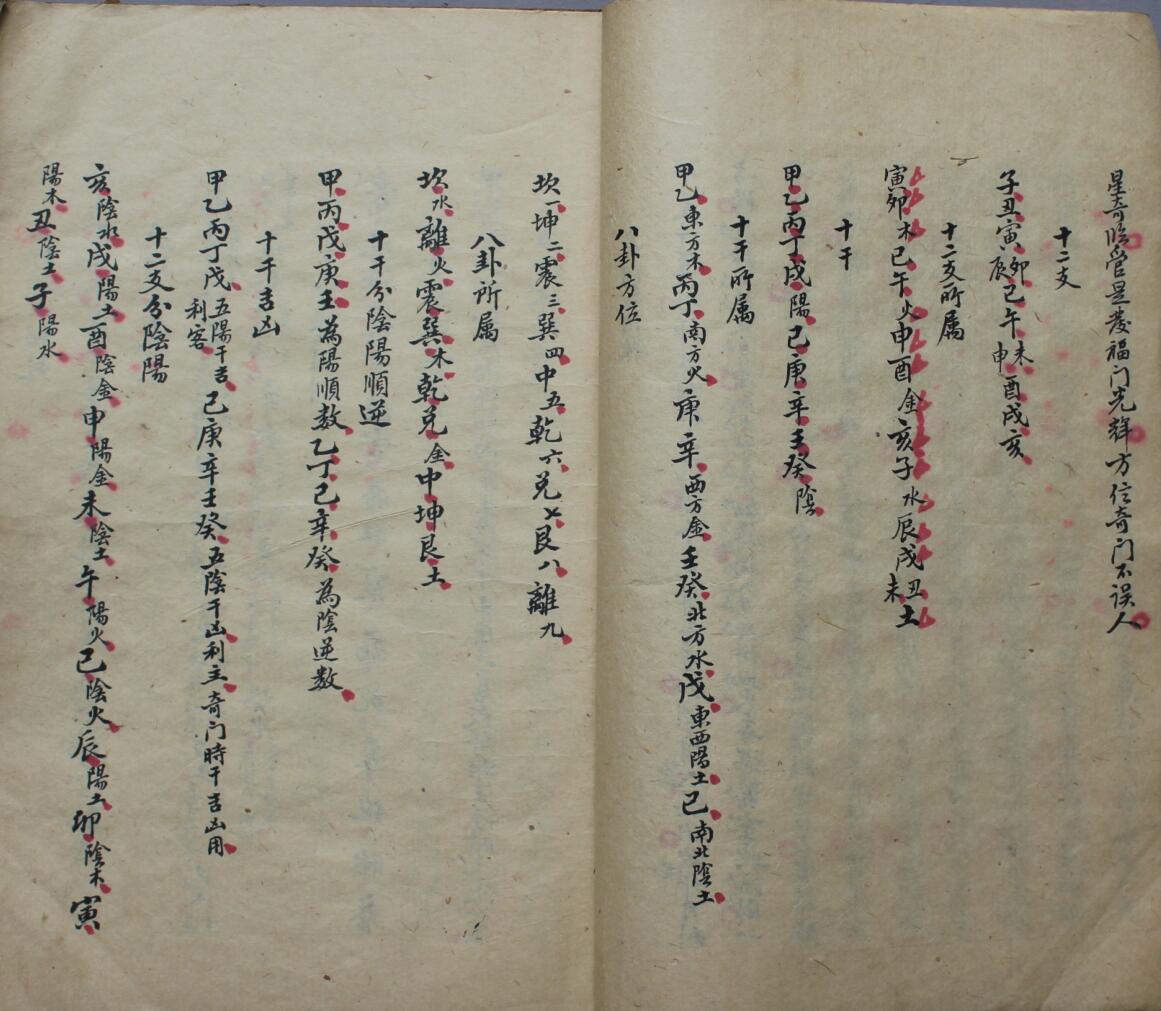 星奇临官是发福门光辉方位奇门不误人
十二支
子丑寅卯辰巳午未申酉戌亥
十二支所属
寅卯木巳午火申酉金亥子水辰戌丑未土
十干
甲乙丙丁戊陽己庚辛壬癸陰
十干所属
甲乙東方木丙丁南方火庚辛西方金壬癸北方水戊東西陽土己南北陰土
八卦方位
坎一坤二震三巽四中五乾六兑七艮八離九
八卦所属
坎水離火震巽木乾兑金中坤艮土
十干分陰陽順逆
甲丙戊庚壬為陽順数乙丁己辛癸為陰逆数
十干吉凶
甲乙丙丁戊五陽干吉利客己庚辛壬癸五陰干凶利主奇门時干吉凶用
十二支分陰陽
亥陰水戌陽土酉陰金申陽金未陰土午陽火巳陰火辰陽土卯陰木寅
陽木丑陰土子陽水